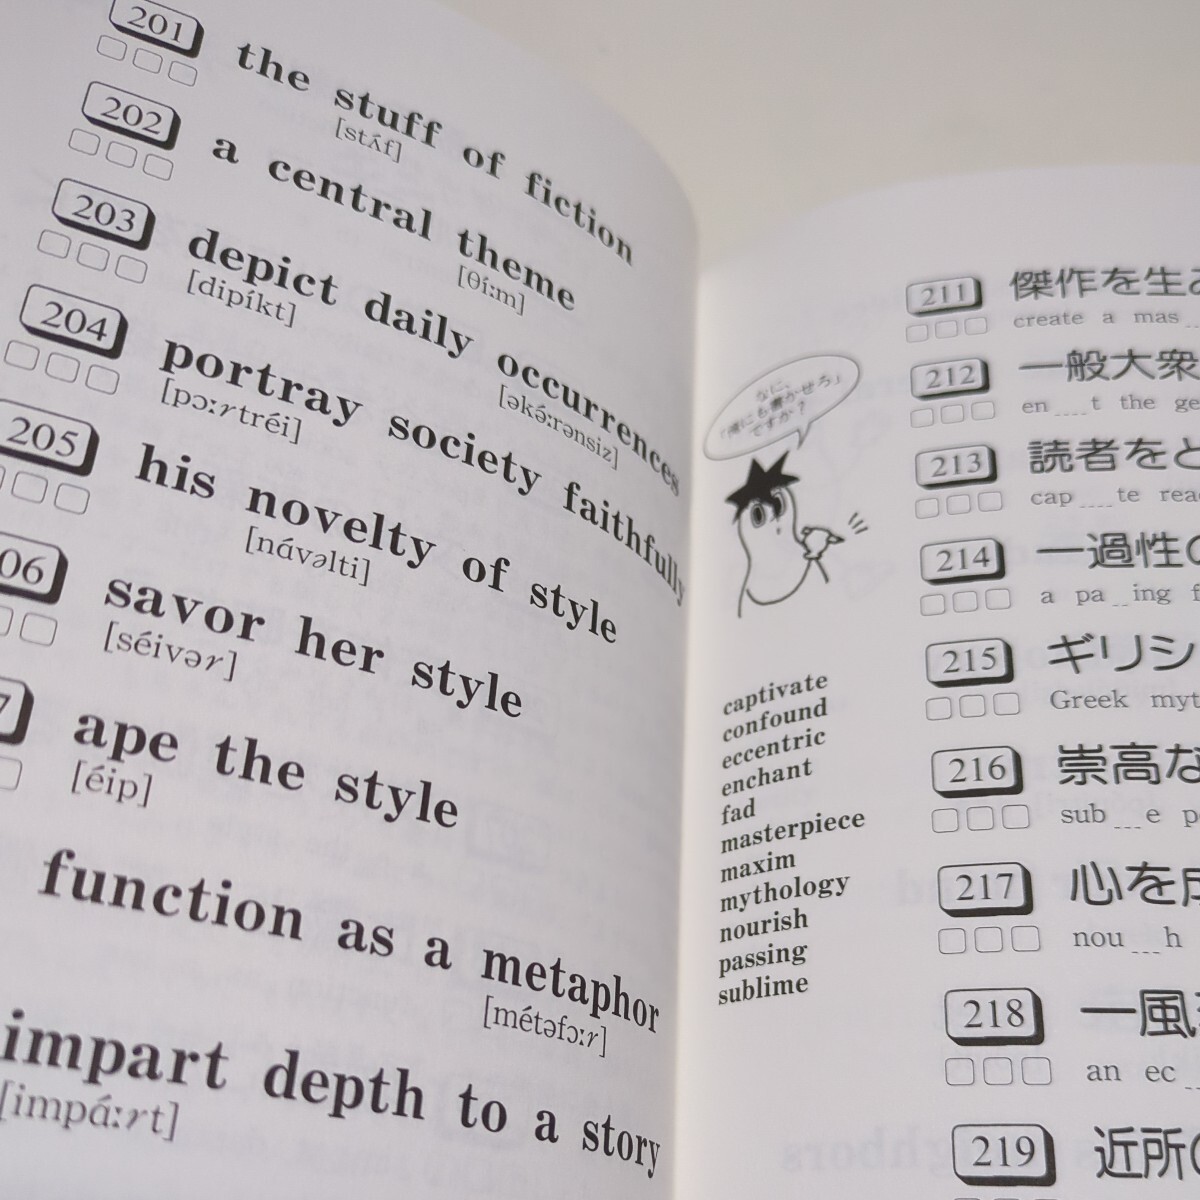 201 the stuff of fiction
[stʌ́f]
202 a central theme
[θíːm]
203 depict daily occurrences
[dipíkt] [əkə́ːrənsiz]
204 portray society faithfully
[pɔːrtréi]
205 his novelty of style
[nɑ́vəlti]
06 savor her style
[séivər]
7 ape the style
[éip]
function as a metaphor
[métəfɔːr]
impart depth to a story
[impɑ́ːrt]
なに、
「俺にも書かせろ」
ですか？
captivate
confound
eccentric
enchant
fad
masterpiece
maxim
mythology
nourish
passing
sublime
211 傑作を生み
create a mas
212 一般大衆
en____t the ge
213 読者をと
cap____te rea
214 一過性の
a pa__ing f
215 ギリシ
Greek myt
216 崇高な
sub___e p
217 心を
nou___h
218 一風
an ec
219 近所の